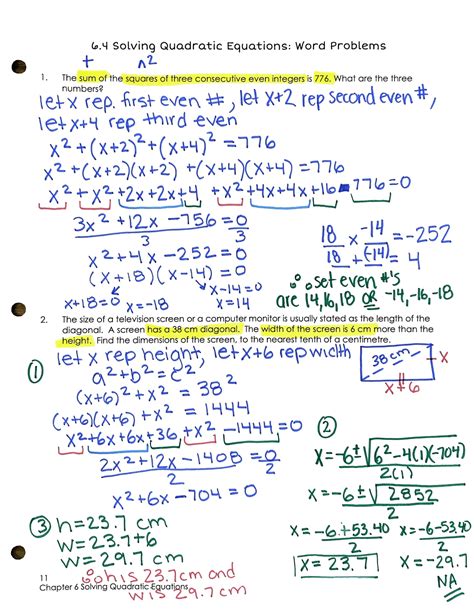 6.4 Solving Quadratic Equations: Word Problems
+ n2
1. The sum of the squares of three consecutive even integers is 776. What are the three
numbers?
let x rep. first even #, let x+2 rep second even #,
let x+4 rep third even
x² + (x+2)² + (x+4)² = 776
x² + (x+2)(x+2) + (x+4)(x+4) = 776
x² + x² + 2x + 2x + 4 + x² + 4x + 4x + 16 - 776 = 0
3x² + 12x - 756 = 0
3 3
x² + 4x - 252 = 0
(x+18)(x-14) = 0
x+18=0 x=-18
x-14=0
x=14
18 x -14 = -252
18 + (-14) = 4
∴ set even #'s
are 14, 16, 18 OR -14, -16, -18
2. The size of a television screen or a computer monitor is usually stated as the length of the
diagonal. A screen has a 38 cm diagonal. The width of the screen is 6 cm more than the
height. Find the dimensions of the screen, to the nearest tenth of a centimetre.
let x rep height, let x+6 rep width
38 cm
x
x+6
①
a² + b² = c²
(x+6)² + x² = 38²
(x+6)(x+6) + x² = 1444
x² + 6x + 6x + 36 + x² - 1444 = 0
2x² + 12x - 1408 = 0
2 2
x² + 6x - 704 = 0
②
x = -6 ± √6² - 4(1)(-704)
2(1)
x = -6 ± √2852
2
x = -6 + 53.40
2
x = 23.7
x = -6 - 53.40
2
x = -29.7
NA
③ h = 23.7 cm
w = 23.7 + 6
w = 29.7 cm
∴ h is 23.7 cm and
w is 29.7 cm
11
Chapter 6 Solving Quadratic Equations